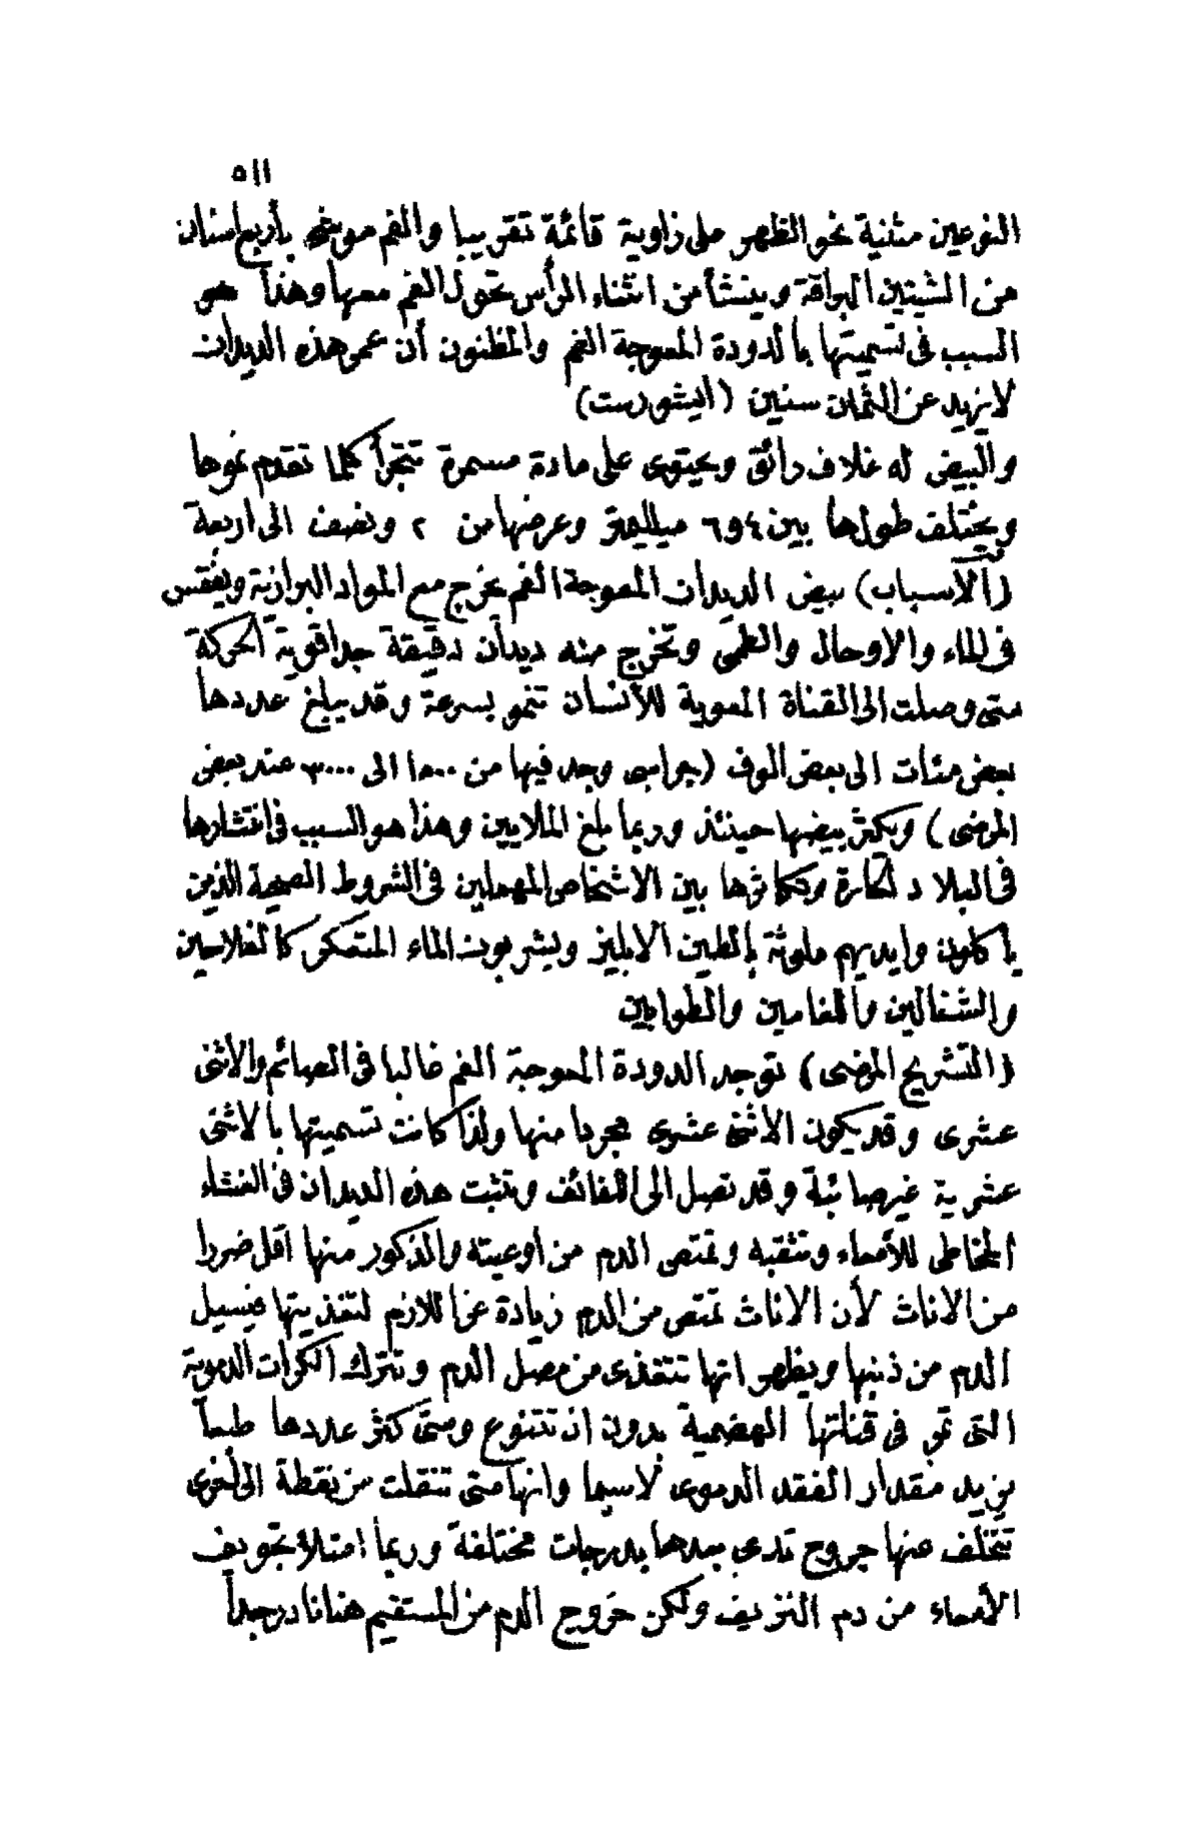 ٥١١
النوعين مثنية نحو الظهر على زاوية قائمة تقريبا والفم موشح بأربع اسنان
من الشيتين البراقة وينشأ من انثناء الرأس تحول الفم معها وهذا هو
السبب فى تسميتها بالدودة المعوجة الفم والمظنون أن عمر هذه الديدان
لا يزيد عن الثمان سنين (اليشورست)
والبيض له غلاف رائق ويحتوى على مادة مسمرة تتجزأ كلما تقدم نموها
ويختلف طولها بين ٤ و٦ ميلليمتر وعرضها من ٢ ونصف الى اربعة
(الأسباب) بيض الديدان المعوجة الفم يخرج مع المواد البرازية ويفقس
فى الماء والاوحال والطمى وتخرج منه ديدان دقيقة جدا قوية الحركة
متى وصلت الى القناة المعوية للأنسان تنمو بسرعة وقد يبلغ عددها
بعض مئات الى بعض الوف (جرابى وجد فيها من ١٨٠٠ الى ٣٠٠٠ عند بعض
المرضى) ويكثر بيضها حينئذ وربما بلغ الملايين وهذا هو السبب فى انتشارها
فى البلاد الحارة وتكاثرها بين الاشخاص المهملين فى الشروط الصحية الذين
يأكلون وايديهم ملوثة بالطين الابليز ويشربون الماء المتعكر كالفلاحين
والشغالين والفاحمين والطوابين
(التشريح المرضى) توجد الدودة المعوجة الفم غالبا فى الصائم والاثنى
عشرى وقد يكون الاثنى عشرى مجردا منها ولذا كانت تسميتها بالاثنى
عشرية غير صائبة وقد تصل الى اللفائف وتثبت هذه الديدان فى الغشاء
المخاطى للأمعاء وتثقبه وتمتص الدم من أوعيته والذكور منها اقل ضررا
من الاناث لأن الاناث تمتص من الدم زيادة عن اللازم لتغذيتها فيسيل
الدم من ذنبها ويظهر انها تتغذى من مصل الدم وتترك الكرات الدموية
التى تمر فى قناتها الهضمية بدون ان تتنوع ومتى كثر عددها طبعا
يزيد مقدار الفقد الدموى لاسيما وانها متى تنقلت من نقطة الى أخرى
تتخلف عنها جروح تدمى بعدها بدرجات مختلفة وربما امتلأ تجويف
الأمعاء من دم النزيف ولكن خروج الدم من المستقيم هنا نادر جدا